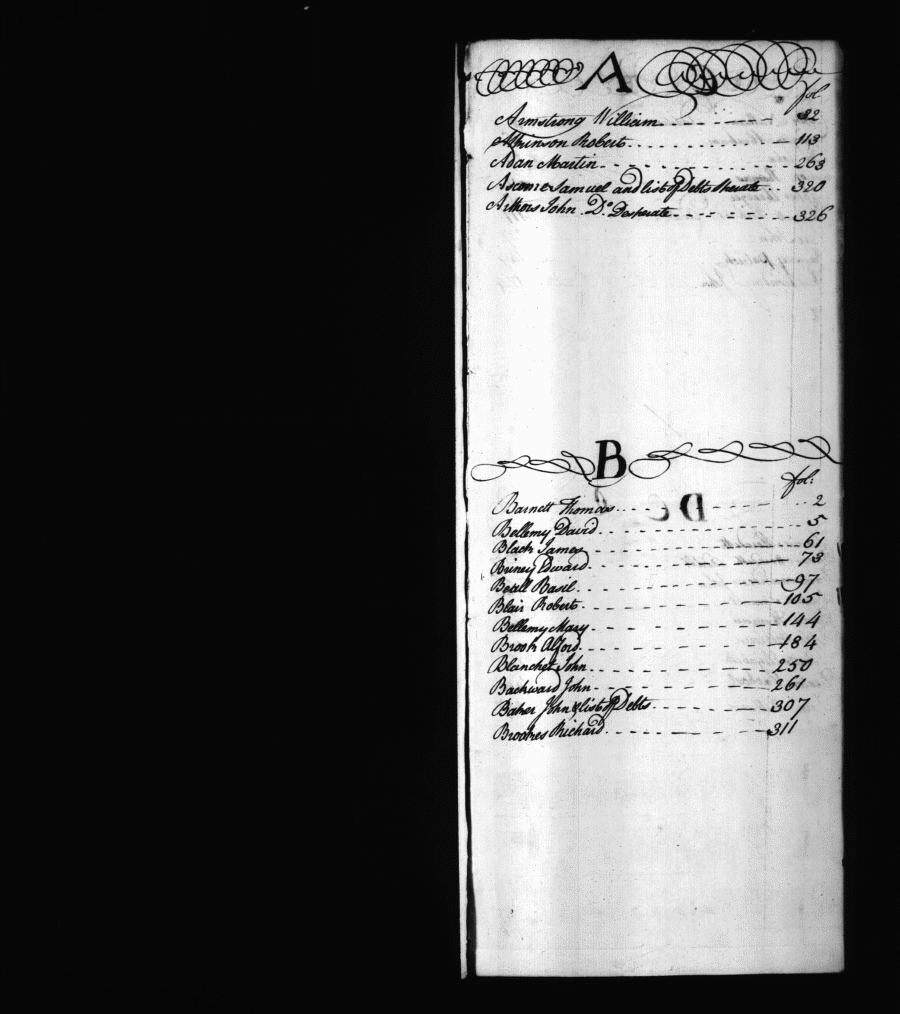 A
fol
Armstrong William 32
Atkinson Robert 113
Adan Martin 263
Ascome Samuel and list of Debts Sperate 320
Arthors John Do Desperate 326
B
fol:
Barnett Thomas 2
Bellemy David 5
Black James 61
Briney Edward 73
Beall Basil 97
Blair Robert 105
Bellemy Mary 144
Brook Alford 184
Blanchet John 250
Backward John 261
Baker John & list of Debts 307
Brookes Richard 311